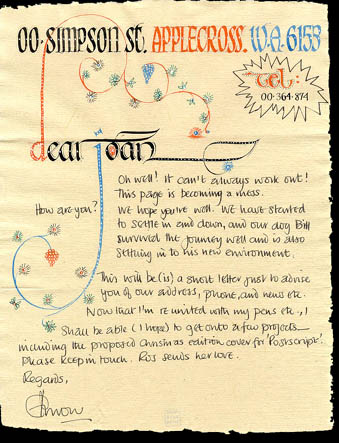 00·SIMPSON St. APPLECROSS. W.A. 6153
tel:
00·364·874
dear Joan
Oh well! It can't always work out!
This page is becoming a mess.
How are you? We hope you're well. We have started
to settle in and down, and our dog Bill
survived the journey well and is also
settling in to his new environment.
This will be (is) a short letter just to advise
you of our address, phone, and news etc.
Now that I'm re united with my pens etc., I
shall be able (I hope) to get onto a few projects
including the proposed Christmas edition cover for 'Postscript'.
Please keep in touch. Ros sends her love.
Regards,